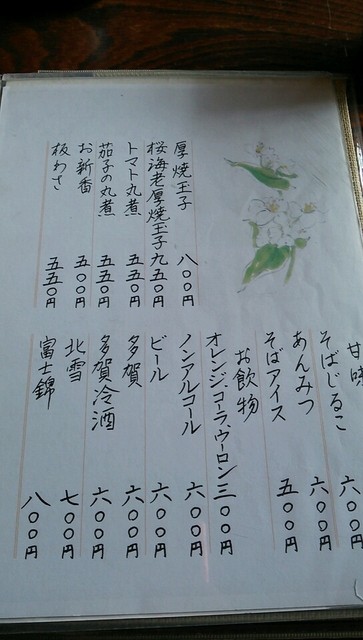 厚焼玉子 八〇〇円
桜海老厚焼玉子 九五〇円
トマト丸煮 五五〇円
茄子の丸煮 五五〇円
お新香 五〇〇円
板わさ 五五〇円
甘味
そばじるこ 六〇〇円
あんみつ 六〇〇円
そばアイス 五〇〇円
お飲物
オレンジ、コーラ、ウーロン 三〇〇円
ノンアルコール 六〇〇円
ビール 六〇〇円
多賀 六〇〇円
多賀冷酒 六〇〇円
北雪 七〇〇円
富士錦 八〇〇円